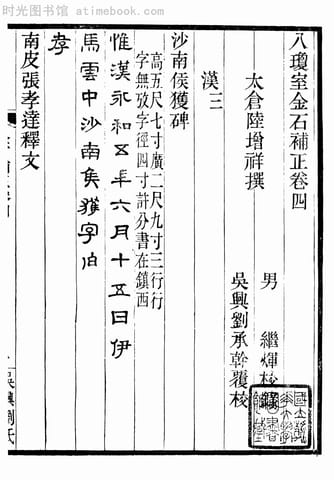 时光图书馆 www.atimebook.com
八瓊室金石補正卷四
太倉陸增祥撰
男 繼煇校錄
吳興劉承幹覆校
漢三
沙南侯獲碑
高五尺七寸廣二尺九寸三行行
字無攷字徑四寸許分書在鎮西
惟漢永和五年六月十五日伊
馬雲中沙南侯獲字伯
孝
南皮張孝達釋文
吳興劉氏